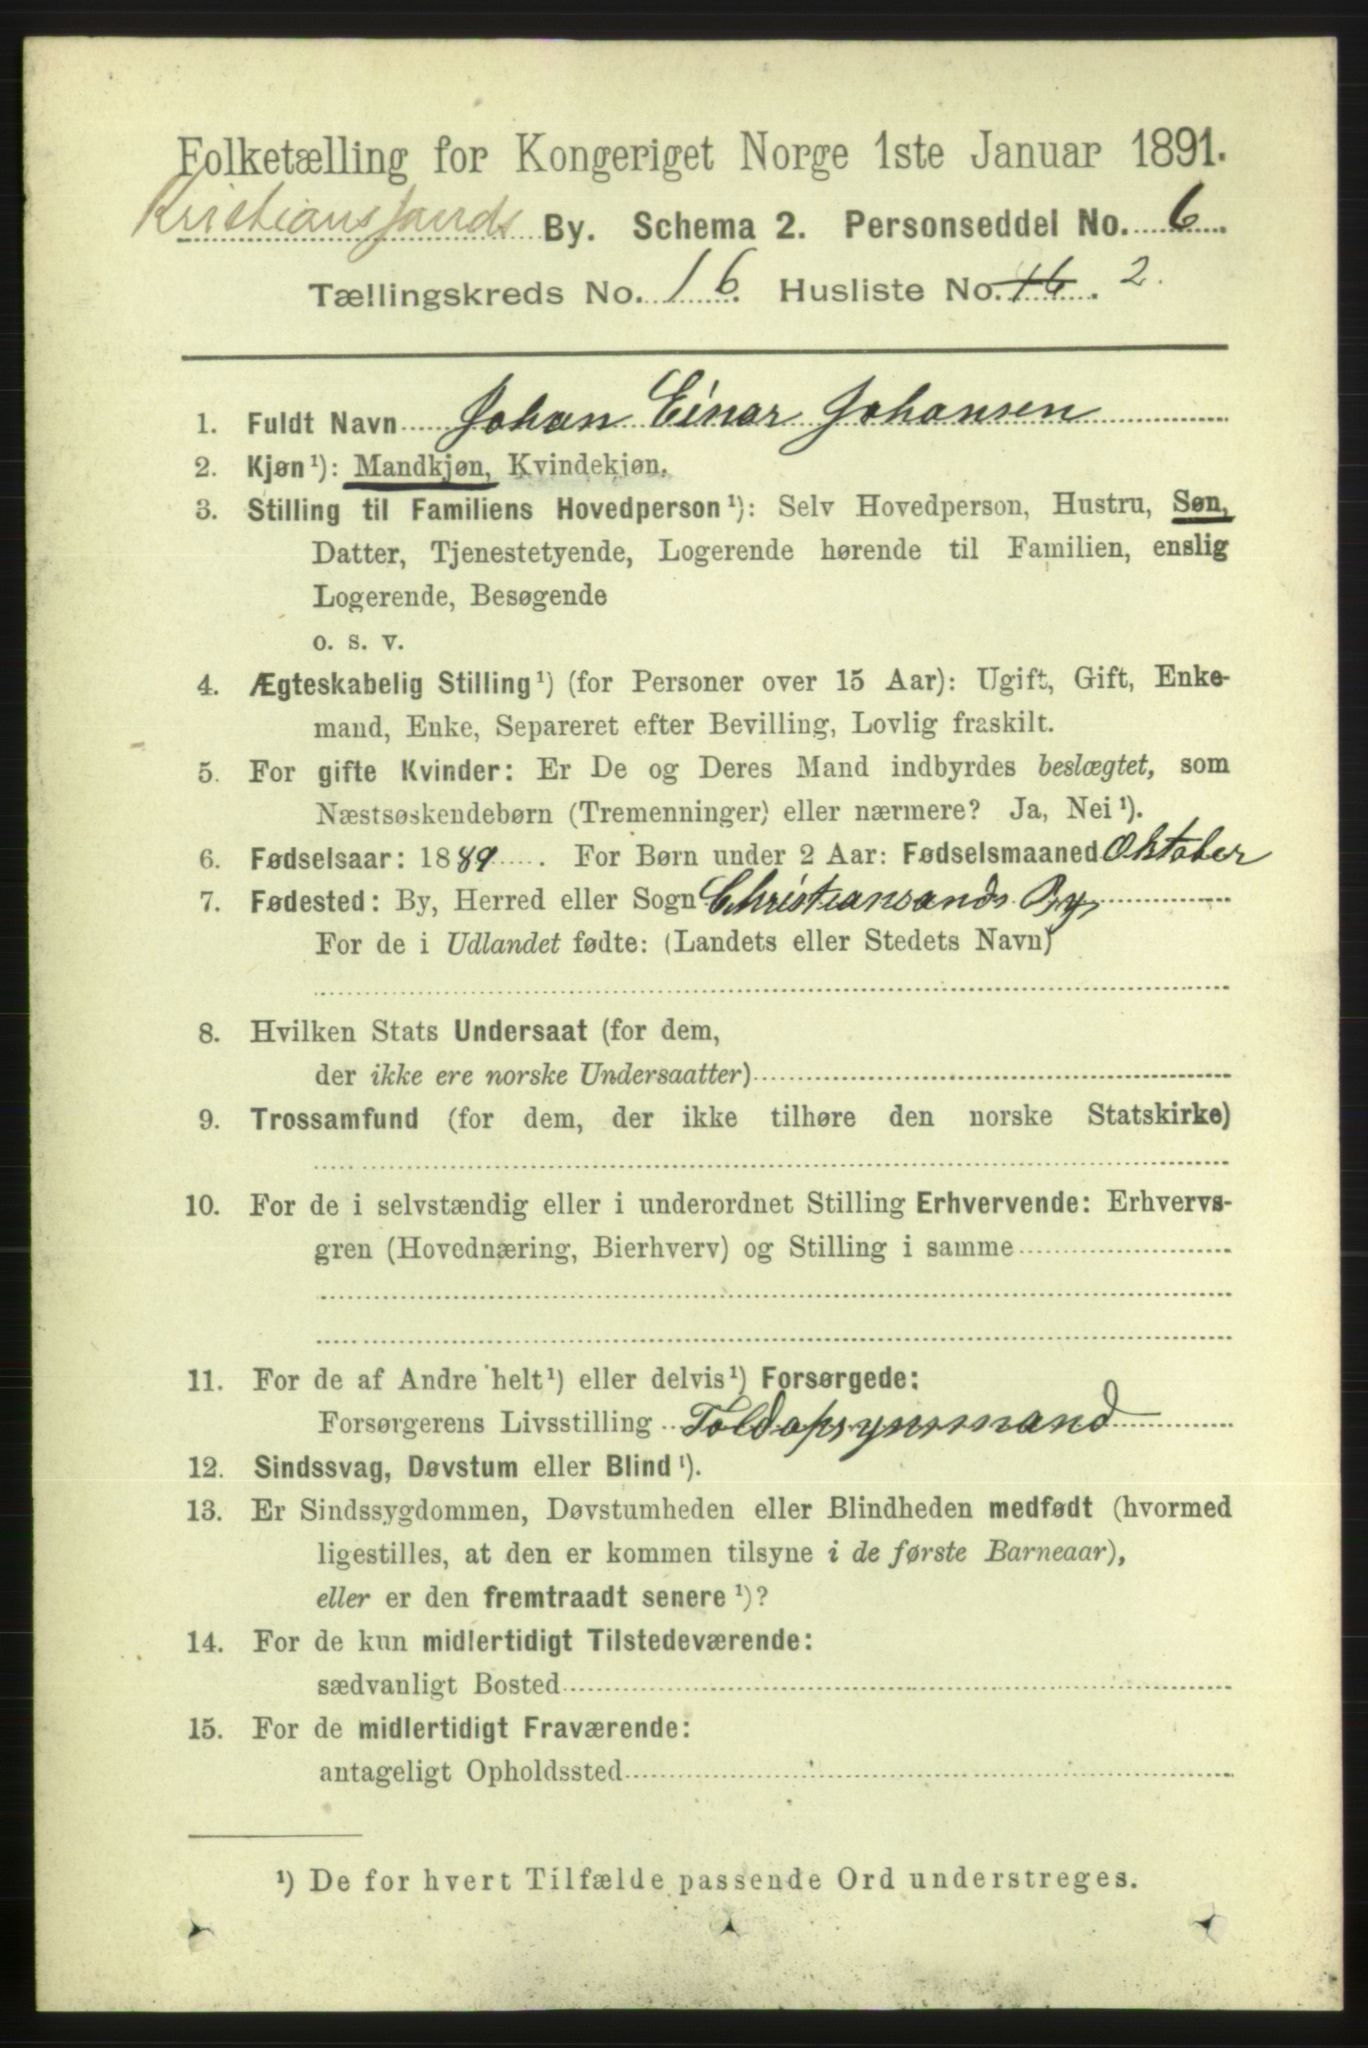 Folketælling for Kongeriget Norge 1ste Januar 1891.
Kristianssands By. Schema 2. Personseddel No. 6
Tællingskreds No. 16. Husliste No. 16. 2.
1. Fuldt Navn Johan Einar Johansen
2. Kjøn¹): Mandkjøn, Kvindekjøn.
3. Stilling til Familiens Hovedperson¹): Selv Hovedperson, Hustru, Søn,
Datter, Tjenestetyende, Logerende hørende til Familien, enslig
Logerende, Besøgende
o. s. v.
4. Ægteskabelig Stilling¹) (for Personer over 15 Aar): Ugift, Gift, Enke-
mand, Enke, Separeret efter Bevilling, Lovlig fraskilt.
5. For gifte Kvinder: Er De og Deres Mand indbyrdes beslægtet, som
Næstsøskendebørn (Tremenninger) eller nærmere? Ja, Nei¹).
6. Fødselsaar: 1889. For Børn under 2 Aar: Fødselsmaaned Oktober
7. Fødested: By, Herred eller Sogn Christiansands By
For de i Udlandet fødte: (Landets eller Stedets Navn)
8. Hvilken Stats Undersaat (for dem,
der ikke ere norske Undersaatter)
9. Trossamfund (for dem, der ikke tilhøre den norske Statskirke)
10. For de i selvstændig eller i underordnet Stilling Erhvervende: Erhvervs-
gren (Hovednæring, Bierhverv) og Stilling i samme
11. For de af Andre helt¹) eller delvis¹) Forsørgede:
Forsørgerens Livsstilling Toldopsynsmand
12. Sindssvag, Døvstum eller Blind¹).
13. Er Sindssygdommen, Døvstumheden eller Blindheden medfødt (hvormed
ligestilles, at den er kommen tilsyne i de første Barneaar),
eller er den fremtraadt senere¹)?
14. For de kun midlertidigt Tilstedeværende:
sædvanligt Bosted
15. For de midlertidigt Fraværende:
antageligt Opholdssted
¹) De for hvert Tilfælde passende Ord understreges.